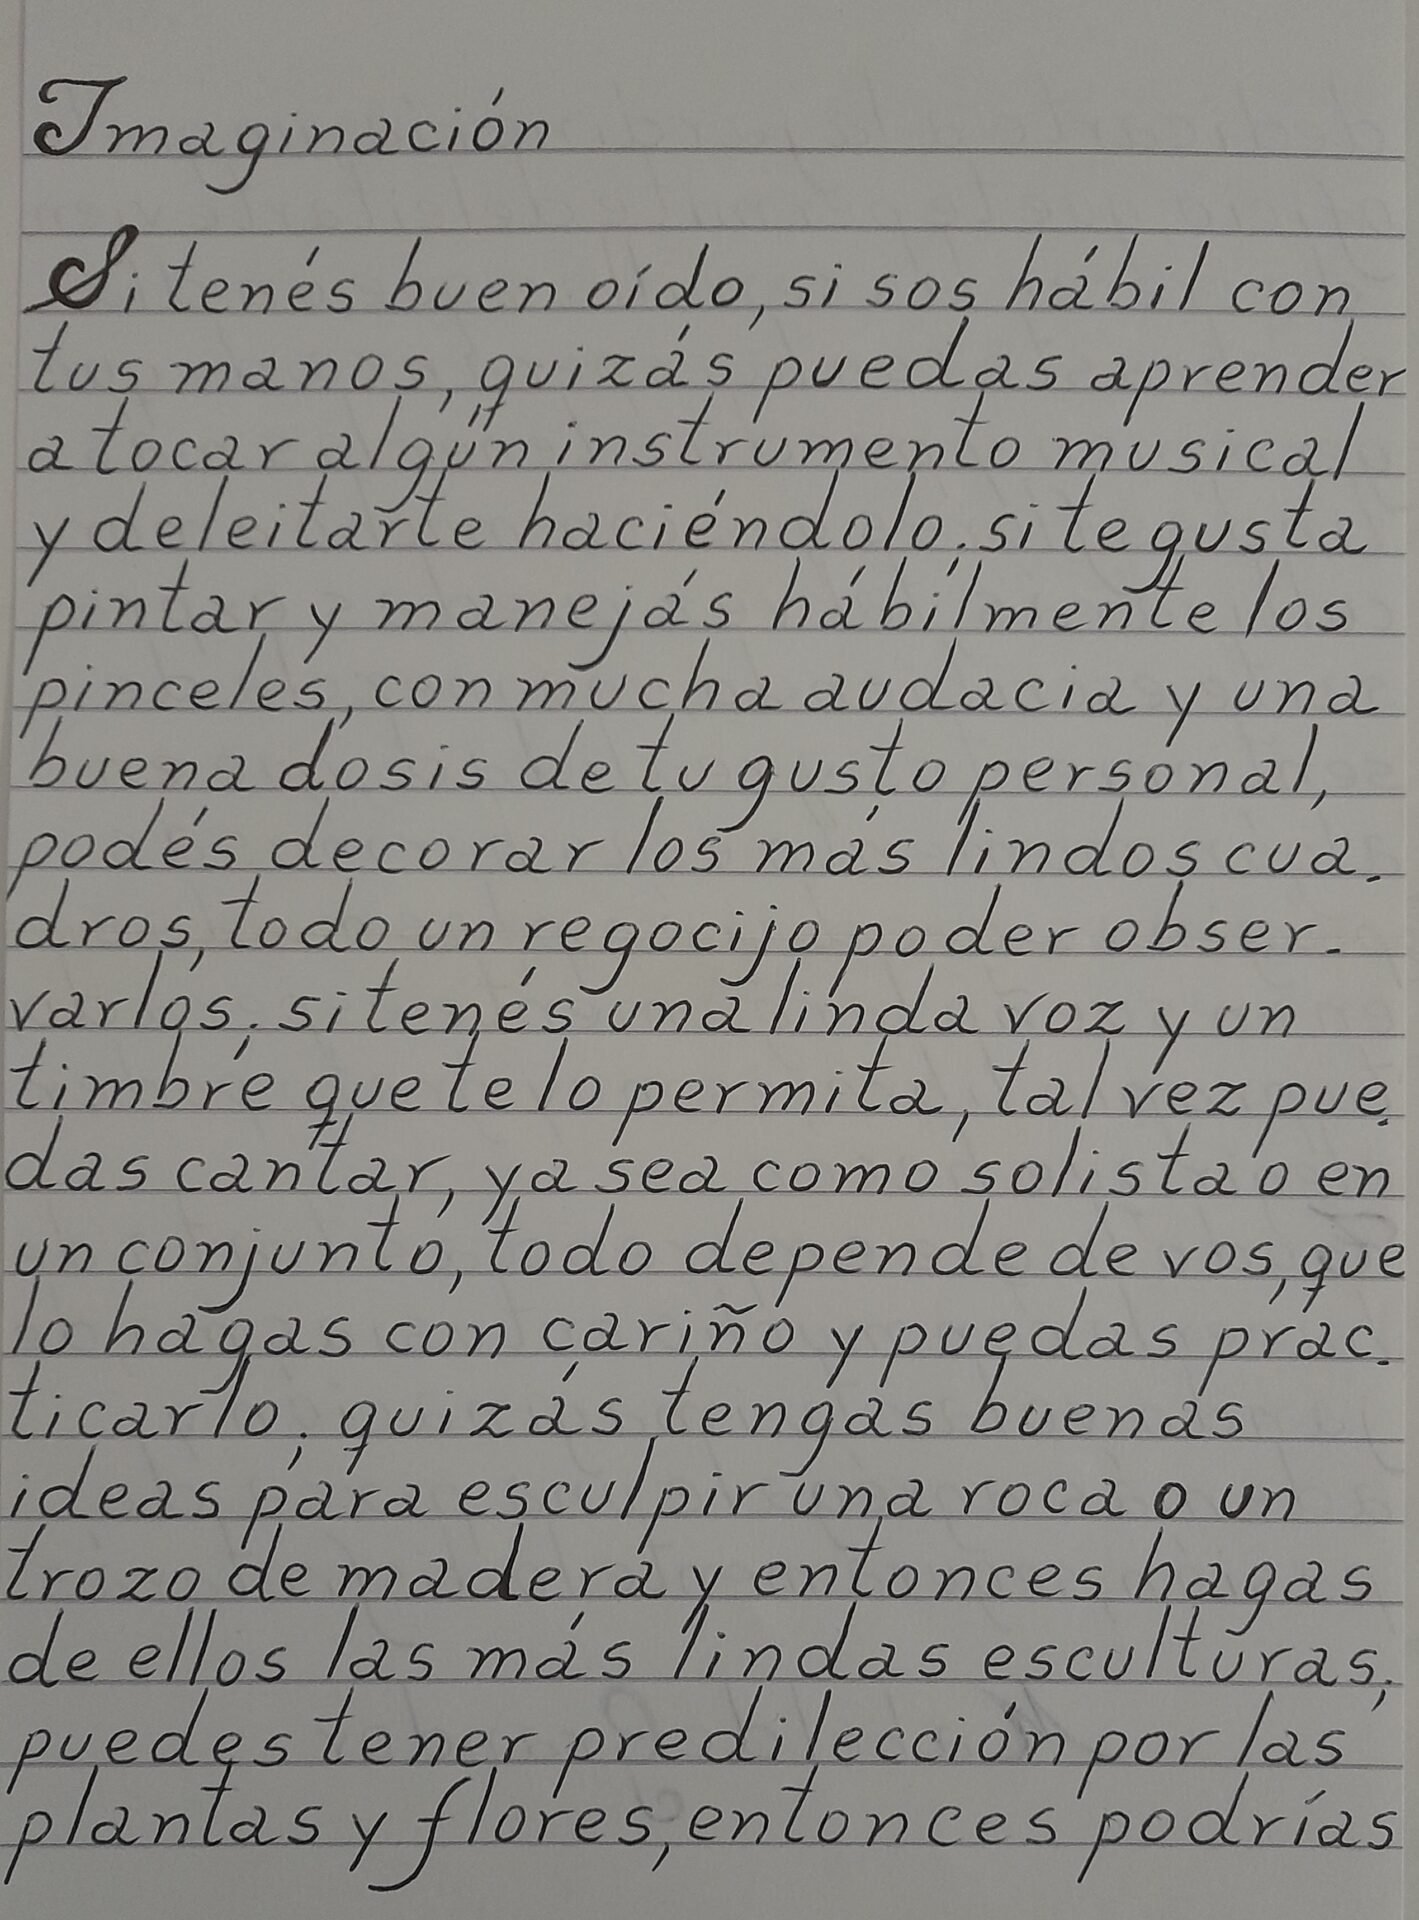 Imaginación
Si tenés buen oído, si sos hábil con
tus manos, quizás puedas aprender
a tocar algún instrumento musical
y deleitarte haciéndolo; si te gusta
pintar y manejás hábilmente los
pinceles, con mucha audacia y una
buena dosis de tu gusto personal,
podés decorar los más lindos cua-
dros, todo un regocijo poder obser-
varlos; si tenés una linda voz y un
timbre que te lo permita, tal vez pue-
das cantar, ya sea como solista o en
un conjunto, todo depende de vos, que
lo hagas con cariño y puedas prac-
ticarlo; quizás tengas buenas
ideas para esculpir una roca o un
trozo de madera y entonces hagas
de ellos las más lindas esculturas;
puedes tener predilección por las
plantas y flores, entonces podrías